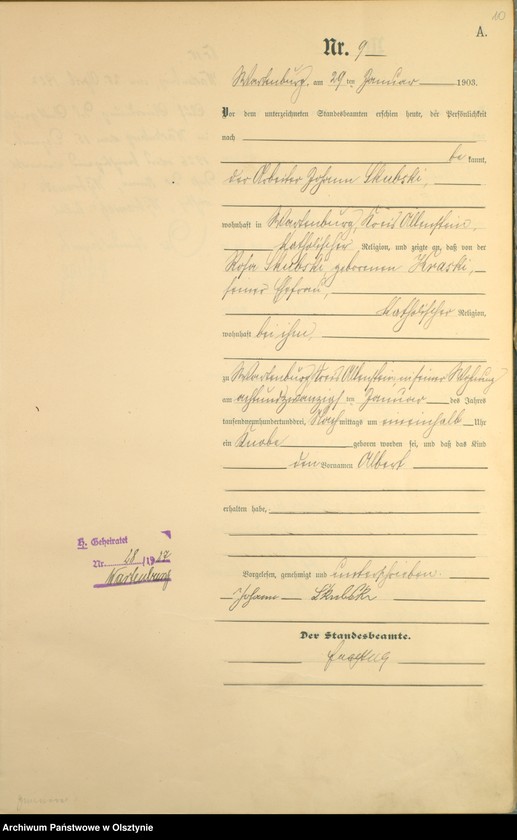 10
A.
Nr. 9
Wartenburg, am 29ten Januar 1903.
Vor dem unterzeichneten Standesbeamten erschien heute, der Persönlichkeit
nach
be kannt,
der Arbeiter Johann Skubski,
wohnhaft in Wartenburg, Kreis Allenstein,
katholischer Religion, und zeigte an, daß von der
Rosa Skubski, geborenen Kraski,
seiner Ehefrau,
katholischer Religion,
wohnhaft bei ihm
zu Wartenburg Kreis Allenstein, in seiner Wohnung
am achtundzwanzigsten Januar des Jahres
tausendneunhundertunddrei, Nachmittags um eineinhalb Uhr
ein Knabe geboren worden sei, und daß das Kind
den Vornamen Albert
erhalten habe,
H. Geheiratet
Nr. 28/1927
Wartenburg
Vorgelesen, genehmigt und unterschrieben.
Johann Skubski
Der Standesbeamte.
Archiwum Państwowe w Olsztynie